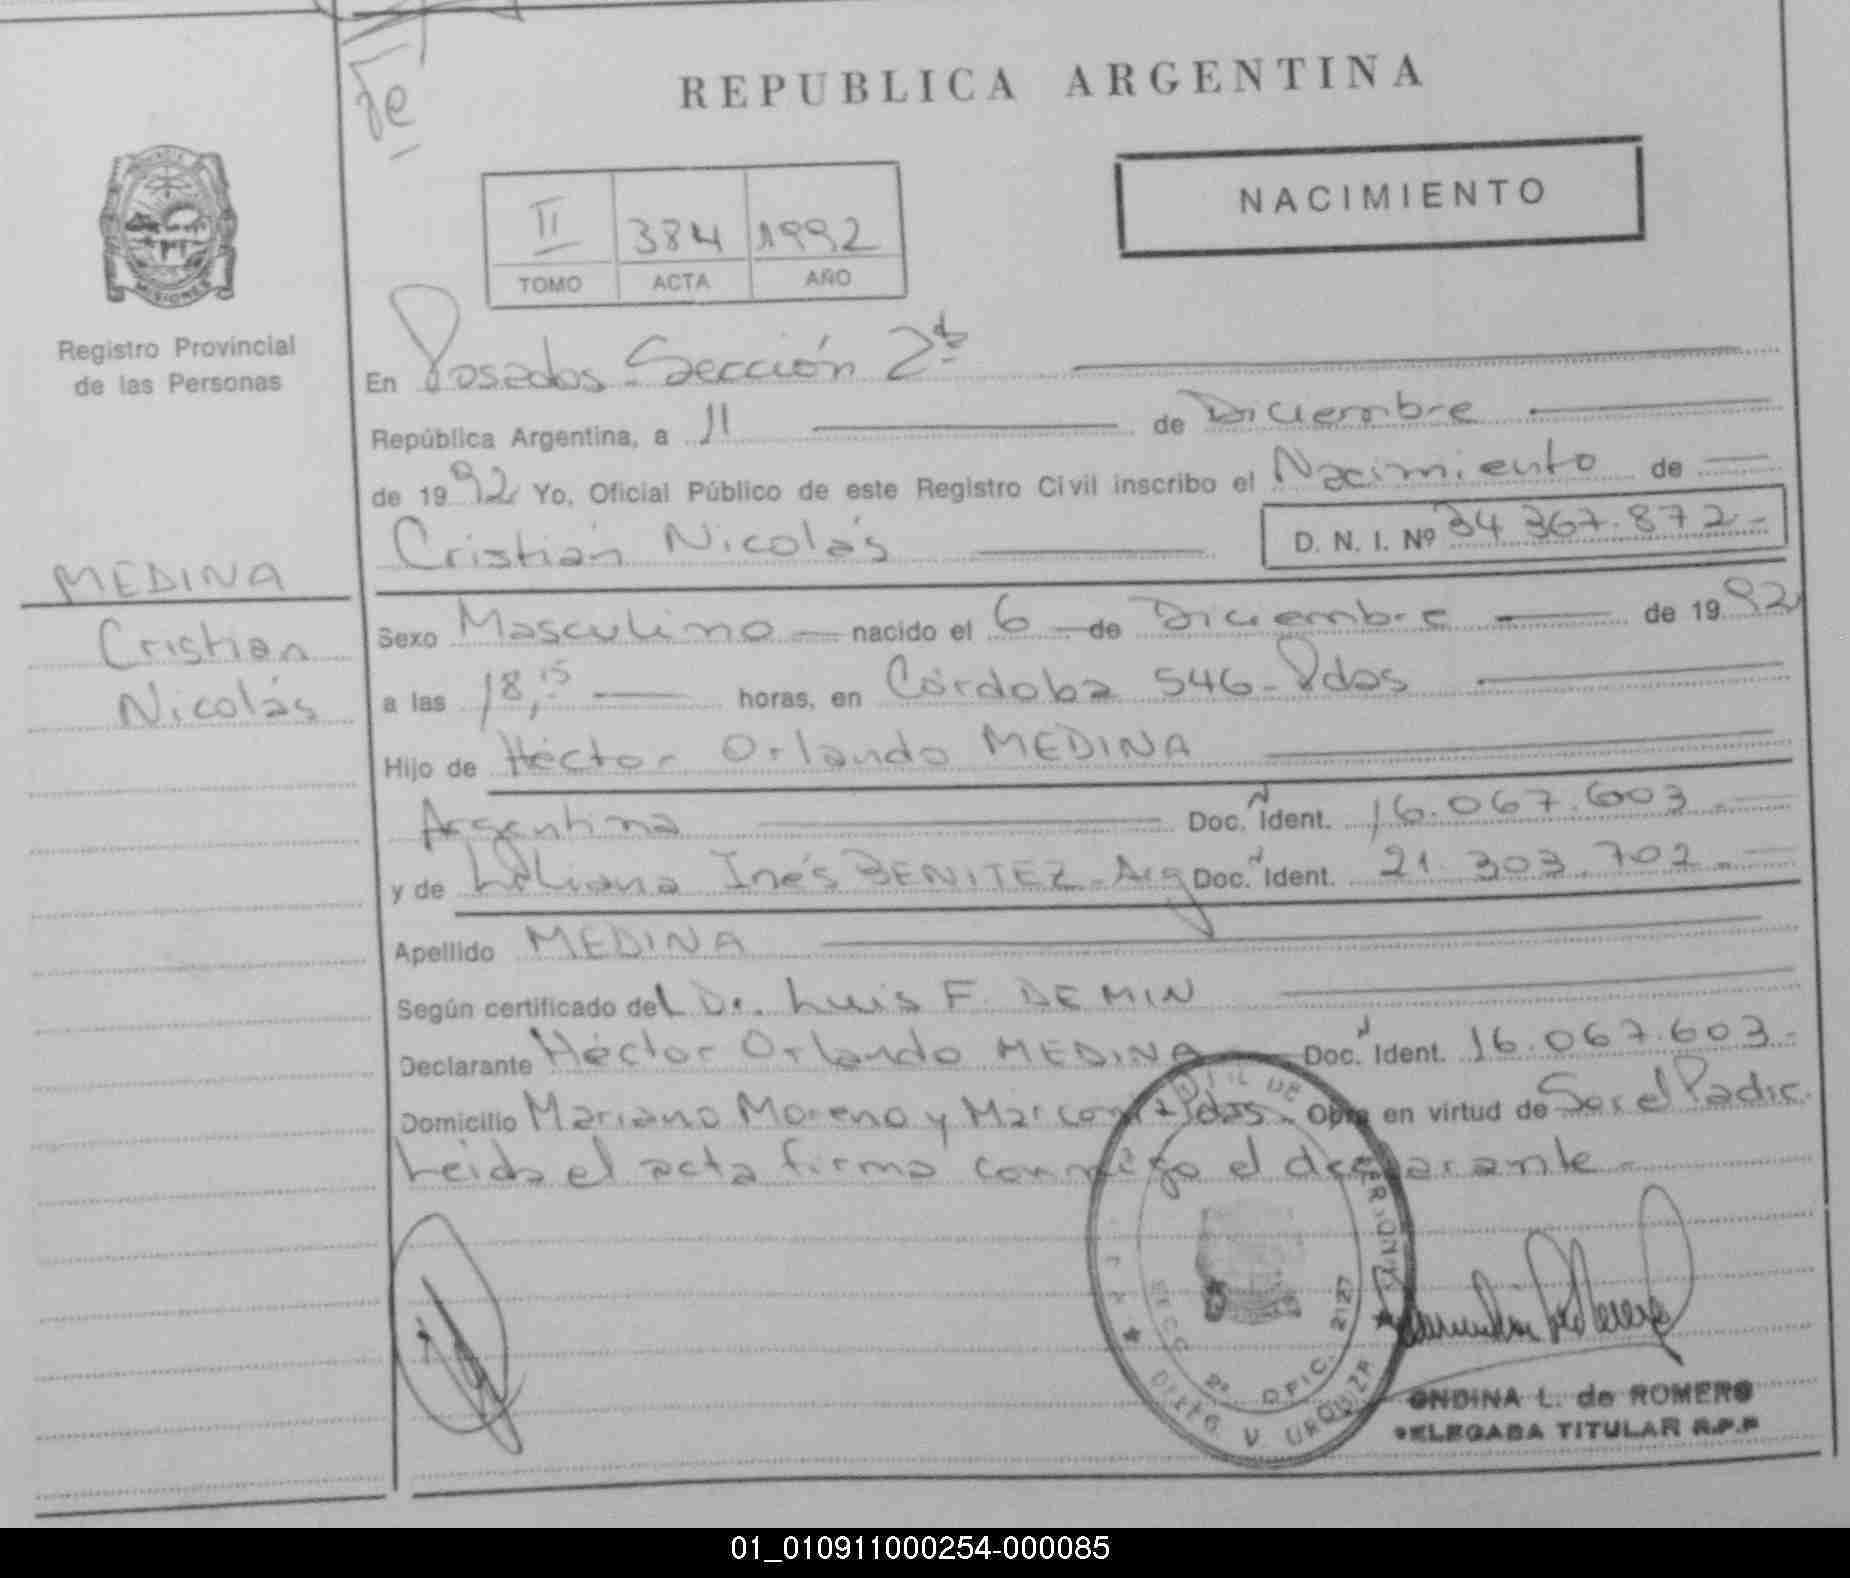 REPUBLICA ARGENTINA
NACIMIENTO
II 384 1992
TOMO ACTA AÑO
MISIONES
Registro Provincial
de las Personas
MEDINA
Cristian
Nicolás
En Posadas - Sección 2ª
República Argentina, a 11 de Diciembre
de 1992 Yo, Oficial Público de este Registro Civil inscribo el Nacimiento de
Cristian Nicolás D. N. I. Nº 34 367.872-
Sexo Masculino nacido el 6 de Diciembre de 1992
a las 18,15 horas, en Córdoba 546 - Pdas
Hijo de Héctor Orlando MEDINA
Argentina Doc. Ident. 16.067.603
y de Liliana Inés BENITEZ - Arg Doc. Ident. 21.303.702
Apellido MEDINA
Según certificado del Dr. Luis F. DEMIN
Declarante Héctor Orlando MEDINA Doc. Ident. 16.067.603-
Domicilio Mariano Moreno y Marconi Pdas - Obra en virtud de Ser el Padre.
Leida el acta firma conmigo el declarante -
SECC 2ª OFIC. 2127
DPTO. V. URQUIZA
ONDINA L. de ROMERO
DELEGADA TITULAR R.P.P
01_010911000254-000085